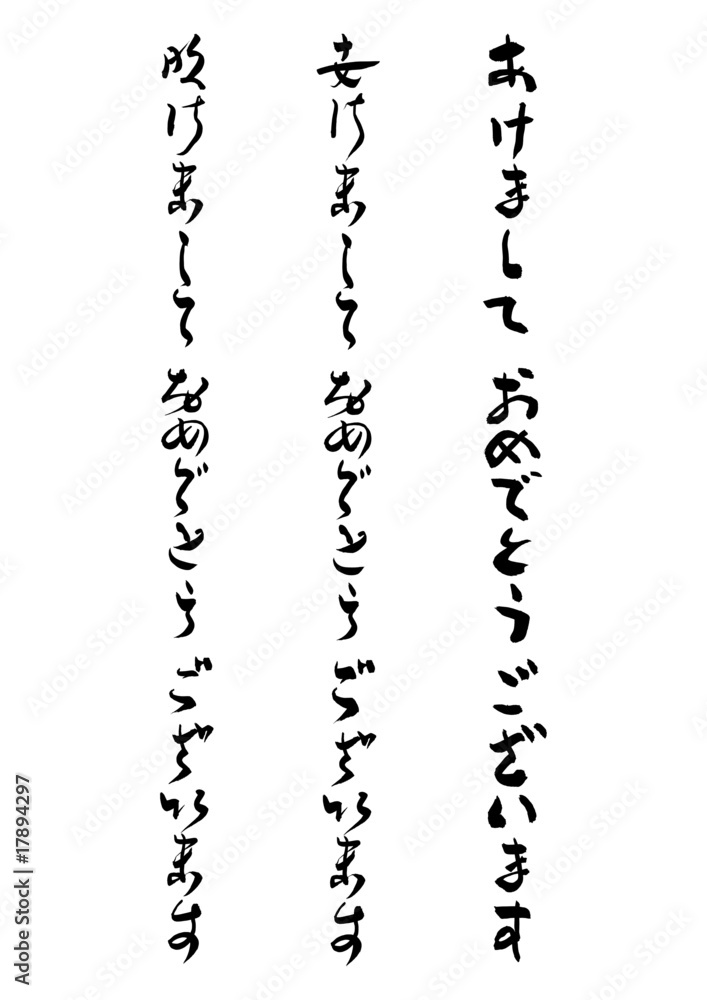 あけまして おめでとう ございます
安けまして おめでとう ございます
明けまして おめでとう ございます
Adobe Stock | #17894297